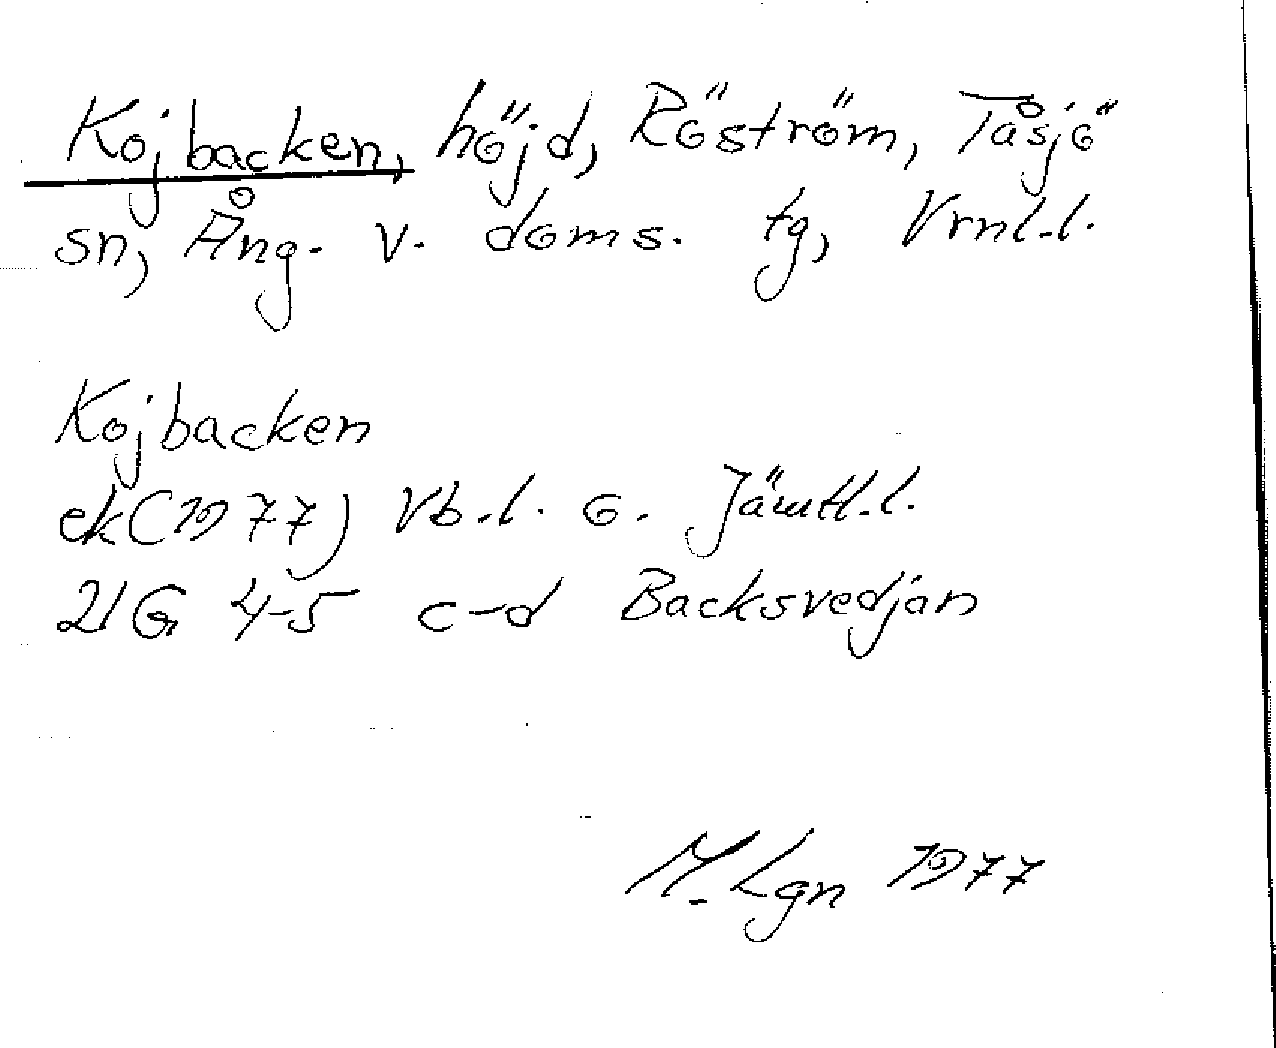 Kojbacken, höjd, Röström, Tåsjö
sn, Ång. v. doms. tg, Vrnl.l.
Kojbacken
ek(1977) Vb.l. o. Jämtl.l.
21G 4-5 c-d Backsvedjan
M. Lgn 1977